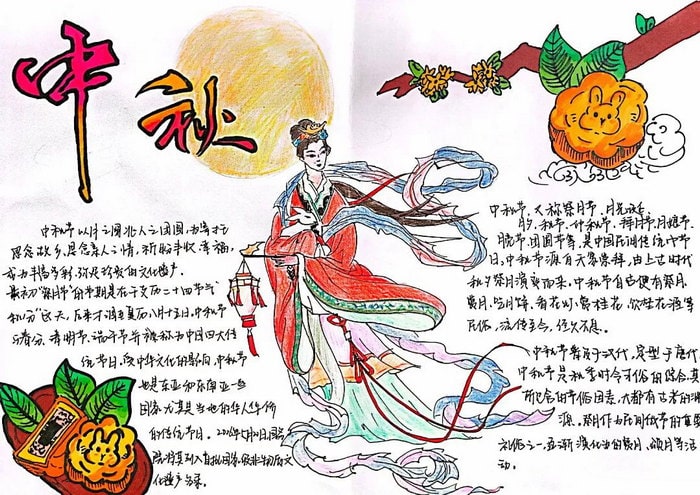 中秋
中秋节以月之圆兆人之团圆,为寄托
思念故乡,思念亲人之情,祈盼丰收、幸福,
成为丰富多彩、弥足珍贵的文化遗产。
最初“祭月节”的节期是在干支历二十四节气
“秋分”这天,后来才调至夏历八月十五日,中秋节
与春分、清明节、端午节并称为中国四大传
统节日。受中华文化的影响,中秋节
也是东亚和东南亚一些
国家尤其是当地的华人华侨
的传统节日。2006年5月20日,国务
院将其列入首批国家级非物质文
化遗产名录。
中秋节、又称祭月节、月光诞、
月夕、秋节、仲秋节、拜月节、月娘节、
月亮节、团圆节等,是中国民间传统节
日。中秋节源自天象崇拜,由上古时代
秋夕祭月演变而来。中秋节自古便有祭月、
赏月、吃月饼、看花灯、赏桂花、饮桂花酒等
民俗,流传至今,经久不息。
中秋节普及于汉代,定型于唐代
中秋节是秋季时令习俗的综合,其
所包含的节俗因素,大都有古老的渊
源。祭月作为民间过节的重要
礼俗之一,逐渐演化为赏月、颂月等活
动。